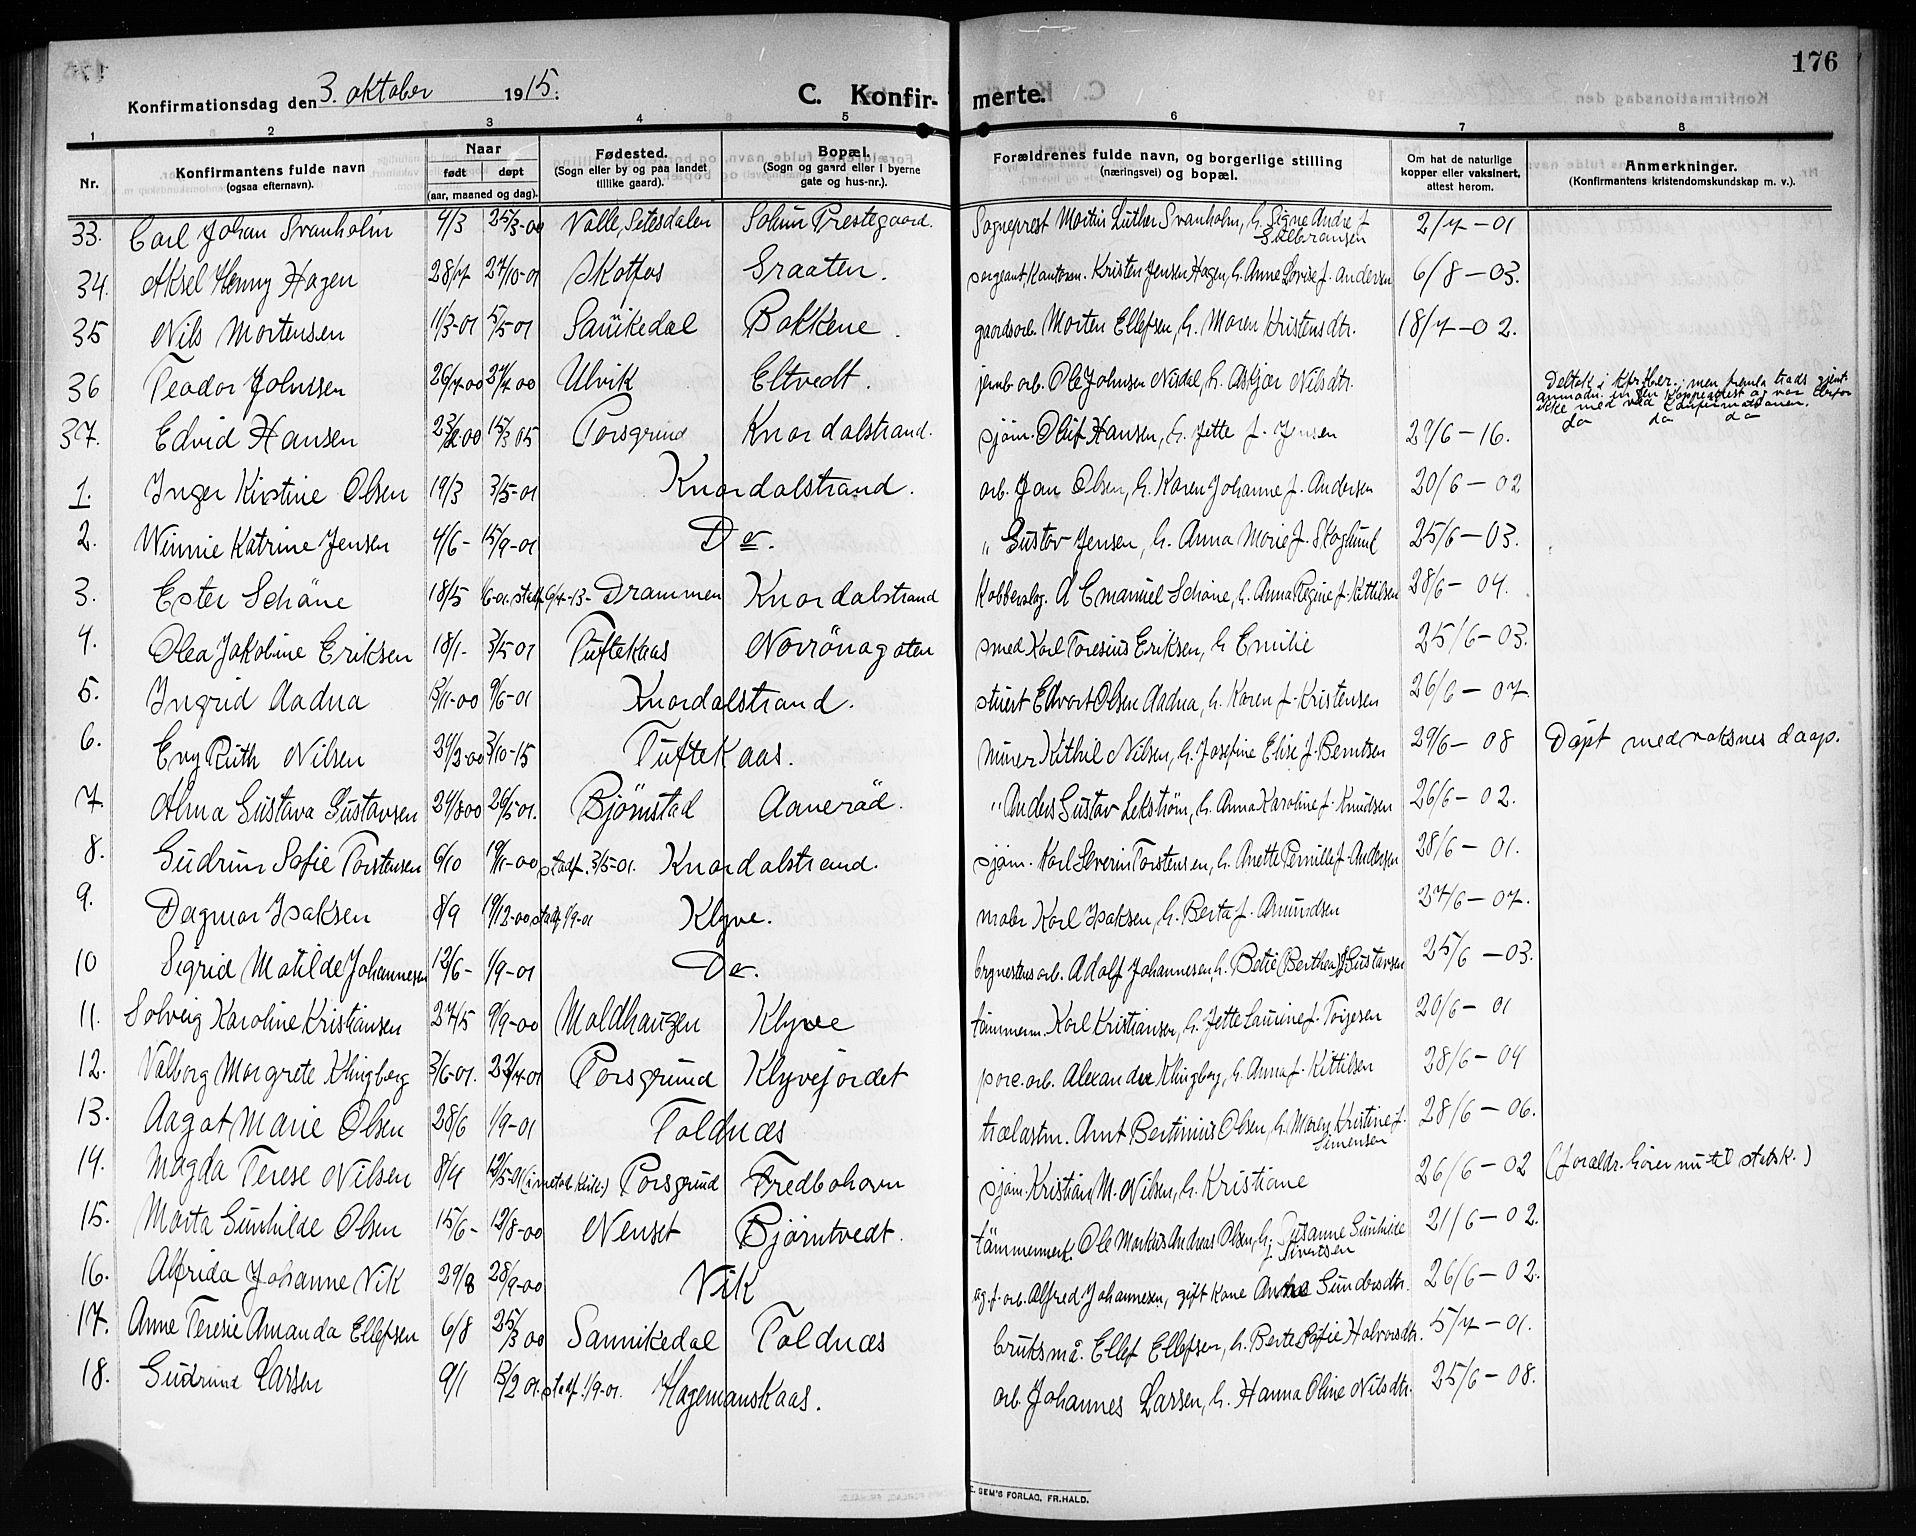 176
Konfirmationsdag den 3. oktober 1915.
C. Konfirmerte.
1 2 3 4 5 6 7 8
Nr.
Konfirmantens fulde navn
(ogsaa efternavn).
Naar
født døpt
(aar, maaned og dag).
Fødested.
(Sogn eller by og paa landet
tillike gaard).
Bopæl.
(Sogn og gaard eller i byerne
gate og hus-nr.).
Forældrenes fulde navn, og borgerlige stilling
(næringsvei) og bopæl.
Om hat de naturlige
kopper eller vaksinert,
attest herom.
Anmerkninger.
(Konfirmantens kristendomskundskap m. v.).
33. Carl Johan Svanholm 4/3 25/3-00 Valle, Setesdalen Solum Prestegaard. Sogneprest Martin Luther Svanholm, h. Signe Andrea f. 2/7-01
34. Aksel Henny Hagen 28/7 27/10-01 Skotfos Graaten. sergeant, Kantorm. Kristen Jensen Hagen, h. Anne Lovise f. Andersen 6/8-03.
35 Nils Mortensen 11/3-01 5/5-01 Sanikedal Bakkene. gaardsarb. Morten Ellefsen, h. Maren Kristensdtr. 18/7-02.
36 Teodor Johnsen 26/7-00 Ulvik Eltvedt. jernb. arb. Ole Johnsen Nisdal, h. Asbjør Nilsdtr. Deltok i kfrfber. men
ikke med ved Confirmationen.
37. Edvid Hansen 15/3 05 Porsgrund Knardalstrand. sjøm. Oluf Hansen, h. Jette f. Jensen 27/6-16. do do do
1. Inger Kirstine Olsen 19/3 3/5-01 Knardalstrand. arb. Jan Olsen, h. Karen Johanne f. Andersen 20/6-02
2. Winnie Katrine Jensen 4/6- 15/9-01 Do. " Gustav Jensen, h. Anna Marie f. Skoglund 25/6-03.
3. Ester Schöne 18/5 1/6-01. stadf. 6/4-13- Drammen Knardalstrand Kobberslag. A Emanuel Schöne, h. Anna Regine f. Kittilsen 28/6-04.
4. Olea Jakobine Eriksen 18/1- 3/5-01 Tuftekaas Norrönagaten smed Karl Toresius Eriksen, h. Emilie 25/6-03.
5. Ingrid Aadna 9/6-01 Knardalstrand. stuert Edvart Olsen Aadna, h. Karen f. Kristensen 26/6-07.
6. Evy Ruth Nilsen 3/10-15 Tuftekaas. Murer Kithil Nilsen, h. Josefine Elise f. Berntsen 29/6-08 Döpt med voksnes daap.
7. Alma Gustava Gustavsen 26/5 01. Bjørnstad Aaneröd. " Anders Gustav Lekström, h. Anna Karoline f. Knudsen 26/6-02.
8. Gudrun Sofie Torstensen 6/10 19/11-00 stadf. 3/5-01. Knardalstrand. sjøm. Karl Severin Torstensen, h. Anette Pernille f. Andersen 28/6-01.
9. Dagmar Isaksen 8/9 19/12-00 stadf 1/9-01 Klyve. maler Karl Isaksen, h. Berta f. Amundsen 27/6-07.
10 Sigrid Matilde Johannesen 12/6- 1/9-01 Do. Adolf Johannesen, h. Betie (Berthea) f. Gustavsen 25/6-03.
11. Solveig Karoline Kristiansen 27/5 9/9-00 Moldhaugen Klyve tømmerm. Karl Kristiansen, h. Jette Laurine f. Torgesen 20/6-01
12. Valborg Margrete Klingberg 3/6-01. 22/4-01 Porsgrund Klyvejordet porc. arb. Alexander Klingberg, h. Anna f. Kittilsen 28/6-04
13. Aagot Marie Olsen 28/6 1/9-01 Toldnæs trælastm. Arnt Bertinius Olsen, h. Maren Kristine f.
Simensen 28/6-06.
14. Magda Terese Nilsen 8/4 12/5-01 Porsgrund Fredbohavn sjøm. Kristian M. Nilsen, h. Kristiane 26/6-02 (foraldr. hører nu til statsk.)
15. Marta Gunhilde Olsen 15/6- 12/8-00 Nenset Bjørntvedt. tömmermk. Ole Markus Andreas Olsen, h. Susanne Gunhilde
f. Sivertsen 21/6-02.
16. Alfrida Johanne Vik 29/8 28/9-00 Vik Alfred Johannesen, gift kone Anna Gundersdtr. 26/6-02.
17. Anne Teresie Amanda Ellefsen 6/8 25/3 00 Sannikedal Toldnæs bruksmå. Ellef Ellefsen, h. Berte Sofie Halvorsdtr. 5/7-01.
18. Gudrund Larsen 9/1 13/2 01. stadf. 1/9-01. Hagemanskaas. arb. Johannes Larsen, h. Hanna Oline Nilsdtr. 25/6-08.
SEM'S FORLAG, FR.HALD.